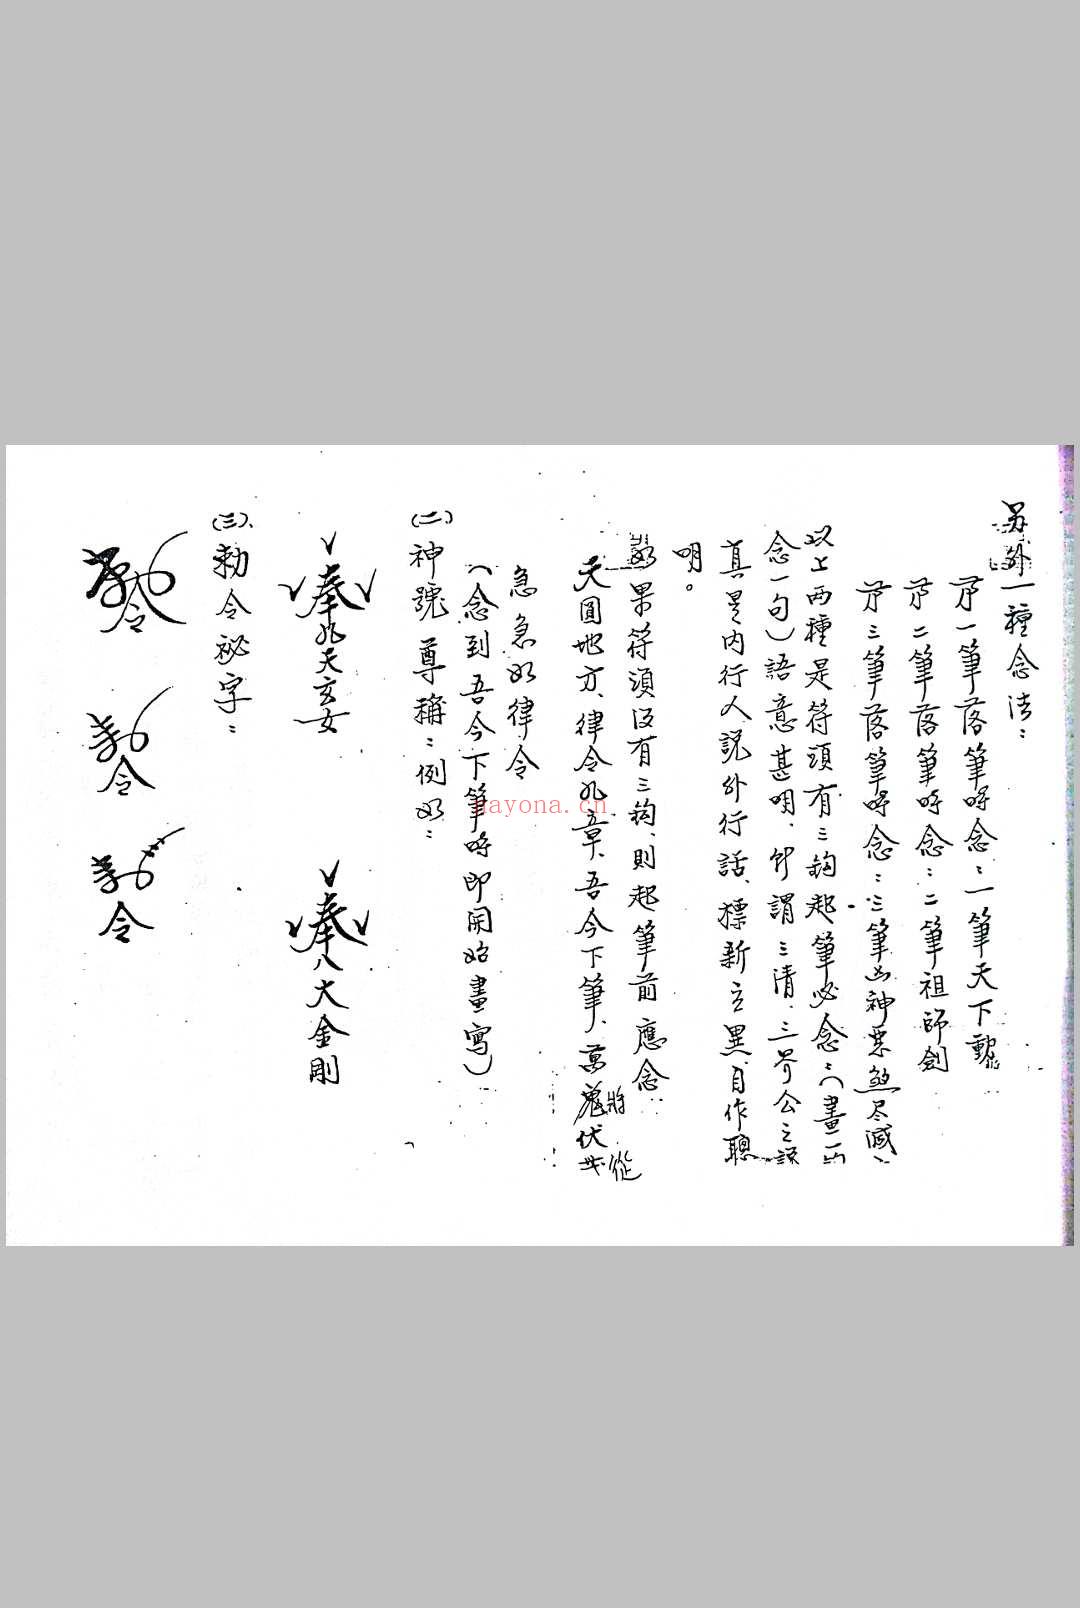 另外一種念法：
第一筆落筆時念：一筆天下動
第二筆落筆時念：二筆祖師劍
第三筆落筆時念：三筆凶神惡煞尽滅、
以上兩種是符頭有三鈎起筆必念：（畫一鈎
念一句）語意甚明、所謂三清、三界公之說
真是内行人説外行話、標新立異、自作聰
明。
如果符頭没有三鈎、則起筆前應念
天圓地方、律令九章、吾今下筆、萬鬼伏
將 從
急急如律令
（念到吾今下筆時即開始畫寫）
(二)神號尊稱：例如：
奉九天玄女
奉八大金剛
(三)、勅令秘字：
令
令
令
nayona.cn